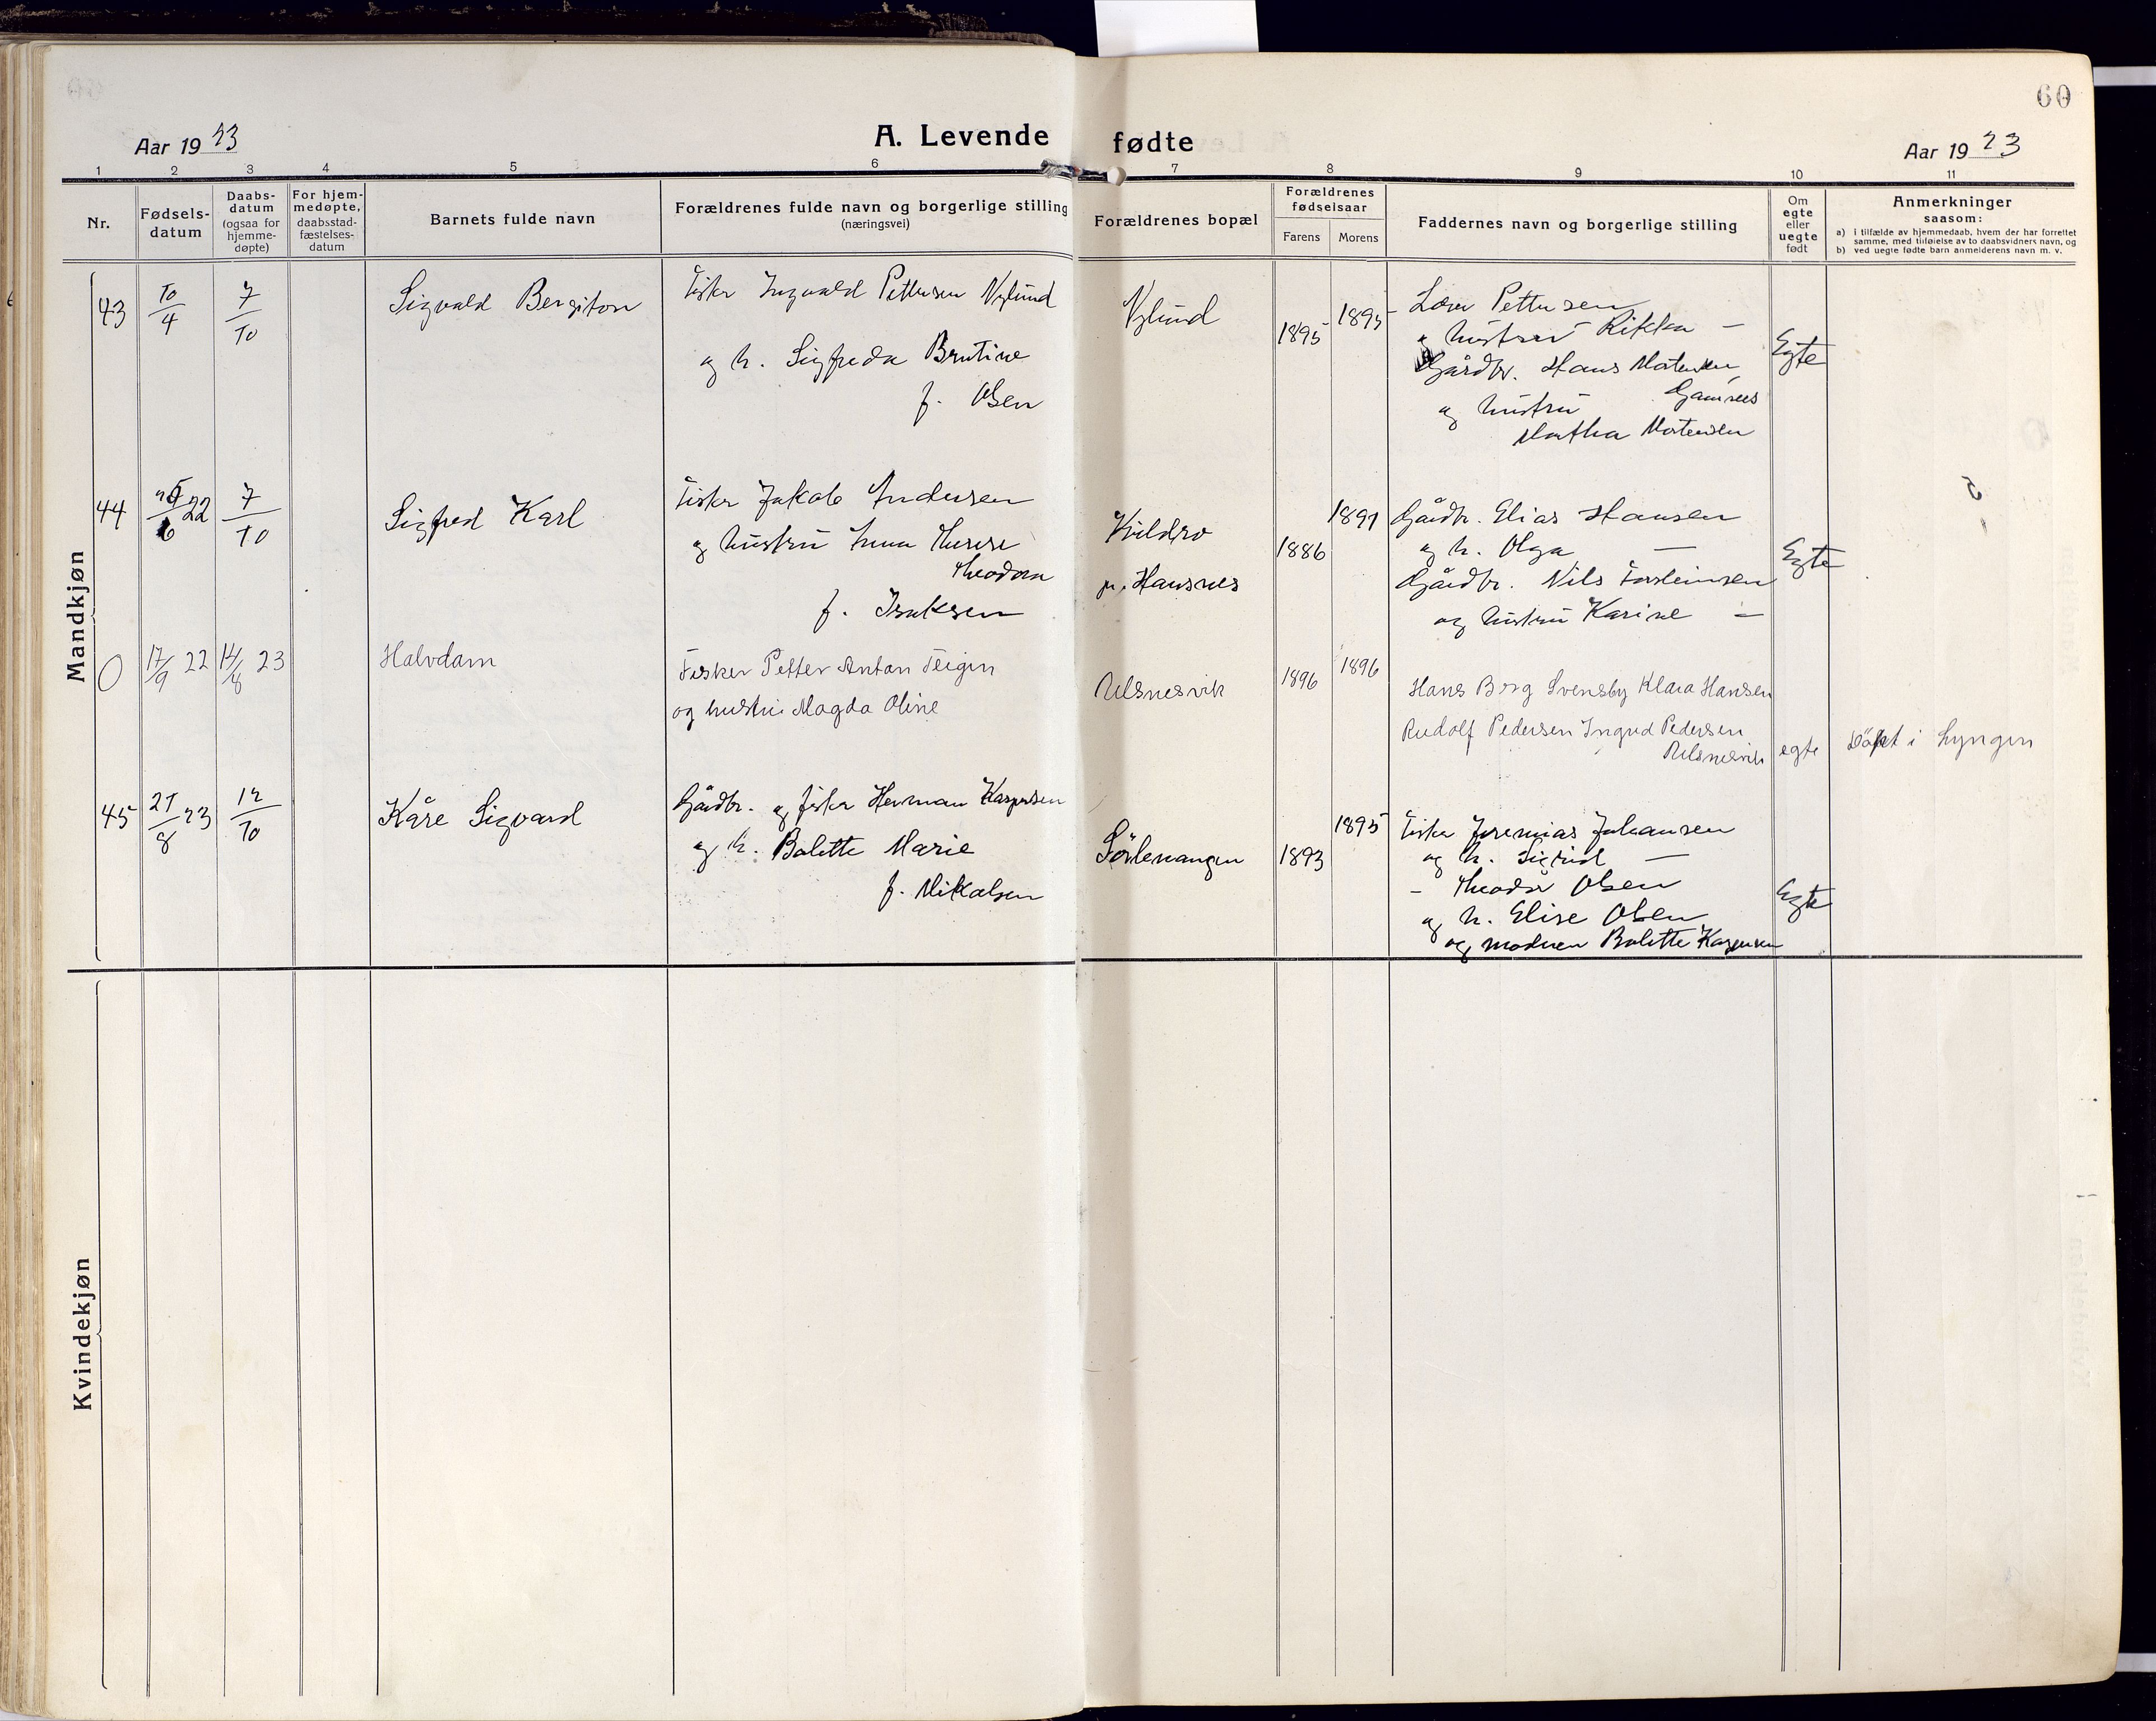 60
Aar 1923
A. Levende fødte
Aar 1923
1 2 3 4 5 6 7 8 9 10 11
Nr.
Fødsels-
datum
Daabs-
datum
(ogsaa for
hjemme-
døpte)
For hjem-
medøpte,
daabsstad-
fæstelses-
datum
Barnets fulde navn
Forældrenes fulde navn og borgerlige stilling
(næringsvei)
Forældrenes bopæl
Forældrenes
fødselsaar
Farens Morens
Faddernes navn og borgerlige stilling
Om
egte
eller
uegte
født
Anmerkninger
saasom:
a) i tilfælde av hjemmedaab, hvem der har forrettet
samme, med tilføielse av to daabsvidners navn, og
b) ved uegte fødte barn anmelderens navn m. v.
Mandkjøn
43
10/4
7/10
Sigvald Bergiton
Fisker Ingvald Pettersen Nylund
og h. Sigfreda
f. Olsen
Nylund
1895
1895
Pettersen
hustru Rikka —
Gårdbr. Hans Mortensen
Gamnes
og hustru
Martha Mortensen
Egte
44
22
7/10
Sigfred Karl
Fisker Jakob Andersen
og hustru Anna Therese
Theodora
f. Isaksen
Kvildro
pr. Hansnes
1886
1891
Gårdbr. Elias Hansen
og h. Olga —
Gårdbr. Nils Torsteinsen
og hustru Karine —
Egte
0
17/9 22
14/8 23
Halvdam
Fisker Petter Anton Teigen
og hustru Magda Oline
Ulsnesvik
1896
1896
Hans Berg Svensby Klara Hansen
Rudolf Pedersen Ingrid Pedersen
Ulsnesvik
egte
Döpt i Lyngen
45
21/8 23
12/10
Kåre Sigvard
Gårdbr. og fisker Herman Kaspersen
og h. Bolette Marie
f. Mikalsen
Sörlenangen
1893
1895
Fisker Jeremias Johansen
og h. Sigrid —
- Theodor Olsen
og h. Elise Olsen
og moderen Bolette Kaspersen
Egte
Kvindekjøn